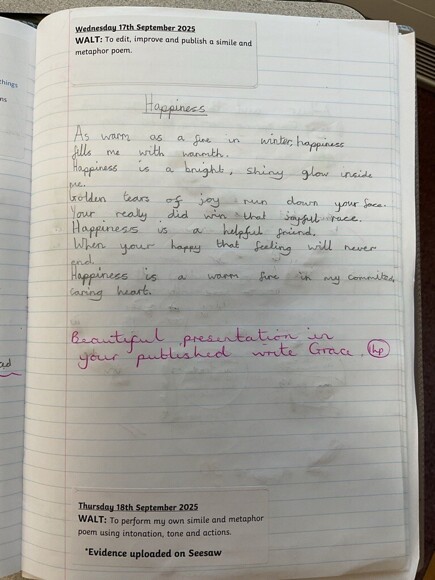 Wednesday 17th September 2025
WALT: To edit, improve and publish a simile and
metaphor poem.
Happiness
As warm as a fire in winter, happiness
fills me with warmth.
Happiness is a bright, shiny glow inside
me.
Golden tears of joy run down your face.
Your really did win that joyful race.
Happiness is a helpful friend.
When your happy that feeling will never
end.
Happiness is a warm fire in my
caring heart.
Beautiful presentation in
your published write Grace.
hp
Thursday 18th September 2025
WALT: To perform my own simile and metaphor
poem using intonation, tone and actions.
*Evidence uploaded on Seesaw
things